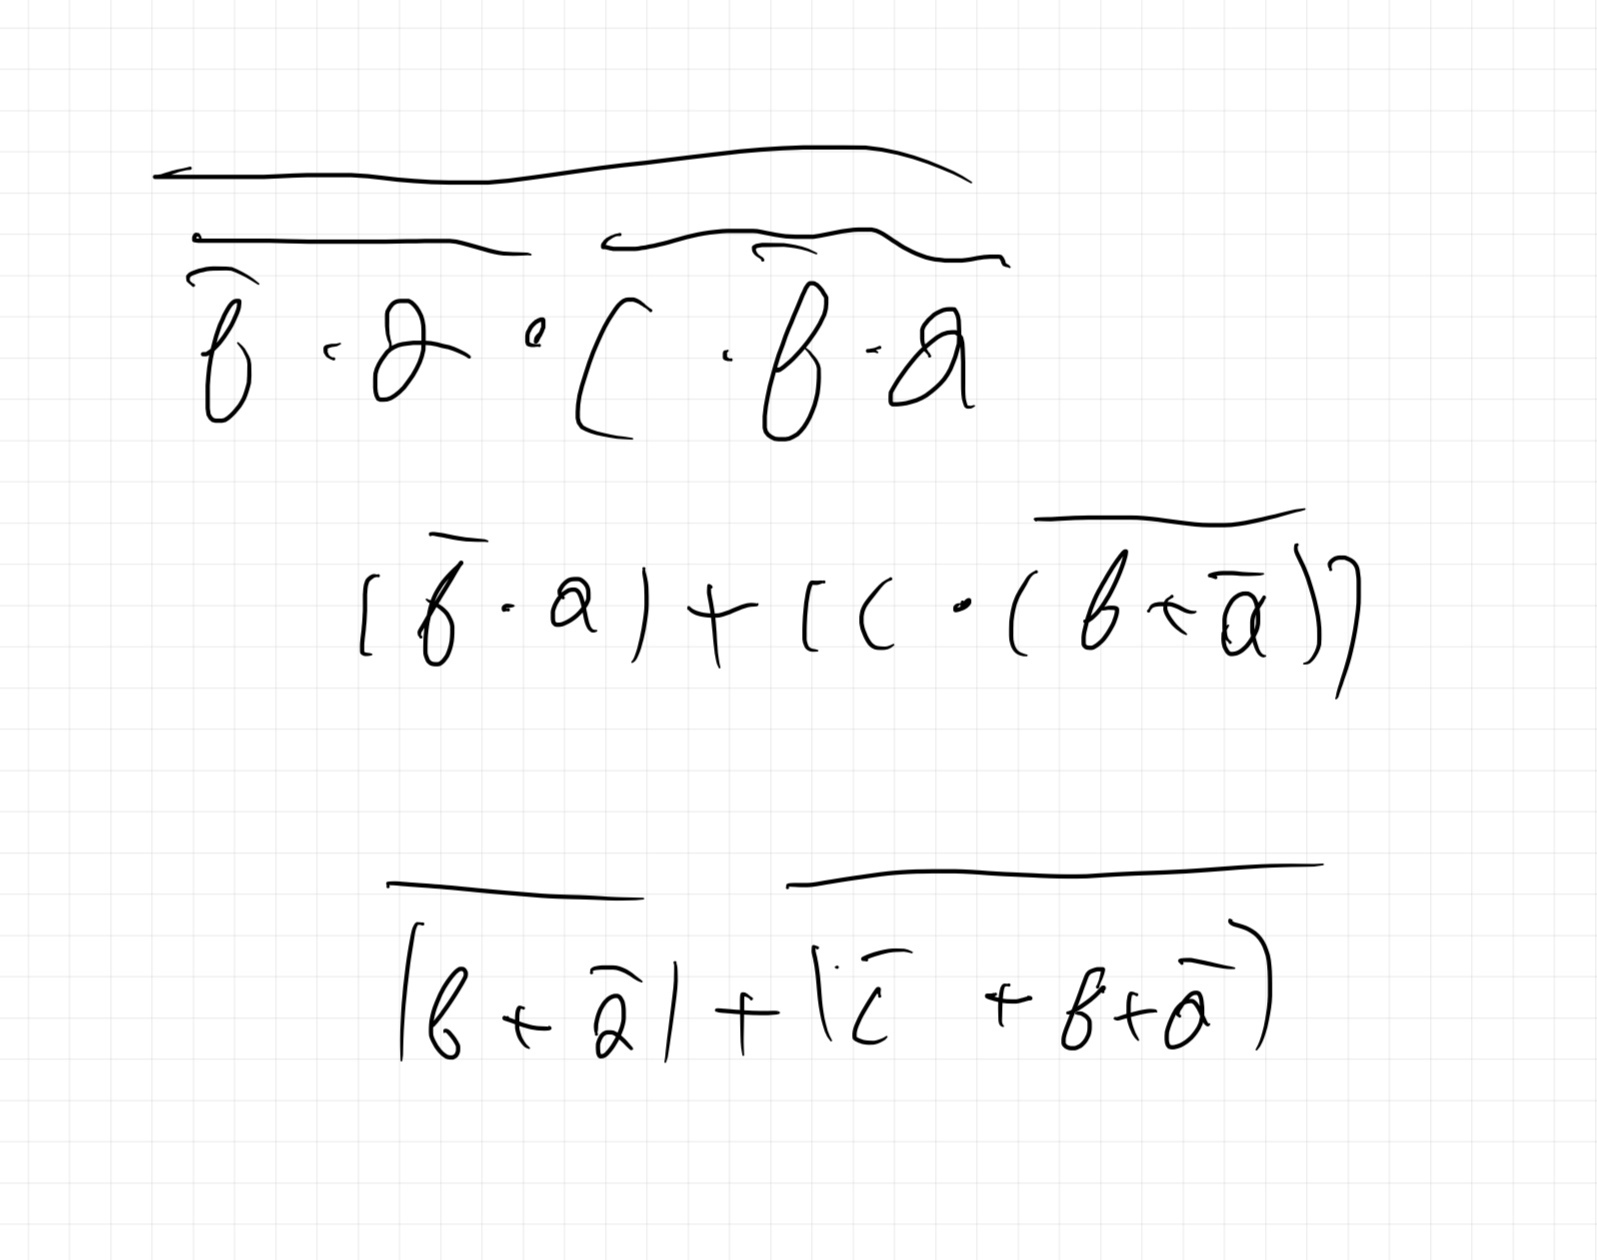 $\overline{\overline{\overline{b} \cdot a} \cdot \overline{c \cdot \overline{b} \cdot a}}$
$(\overline{b} \cdot a) + (c \cdot \overline{(b + \overline{a})})$
$\overline{(b + \overline{a})} + \overline{(\overline{c} + b + \overline{a})}$